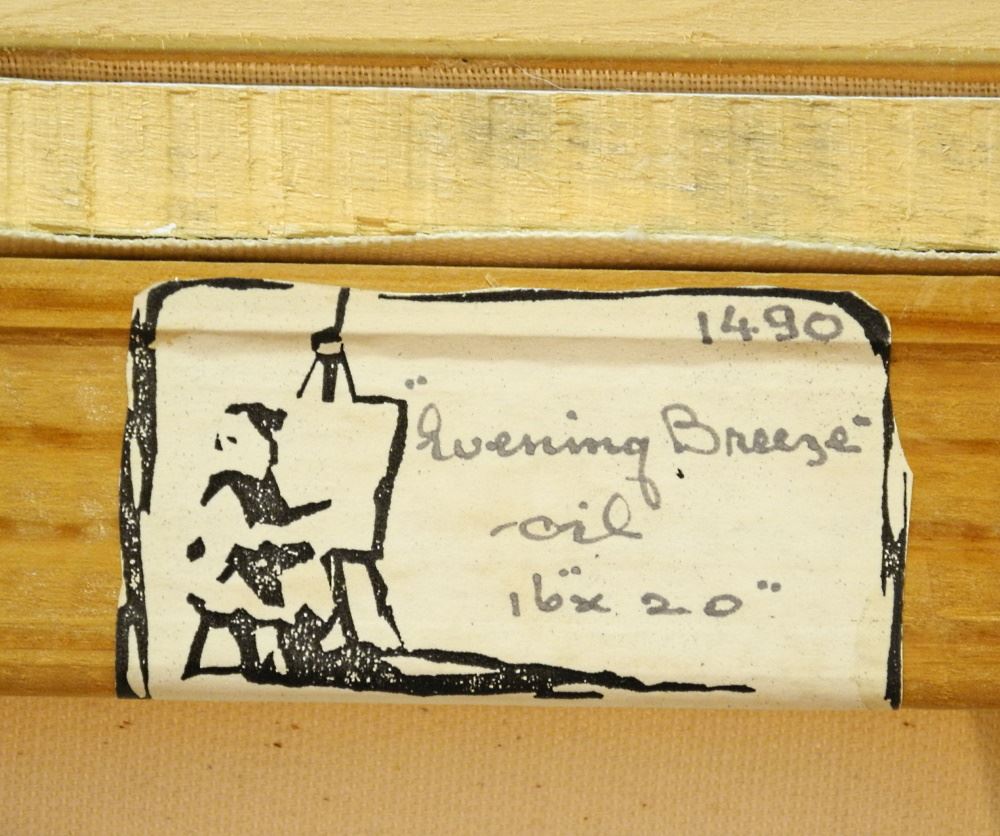 1490
"Evening Breeze"
oil
16"x 20"